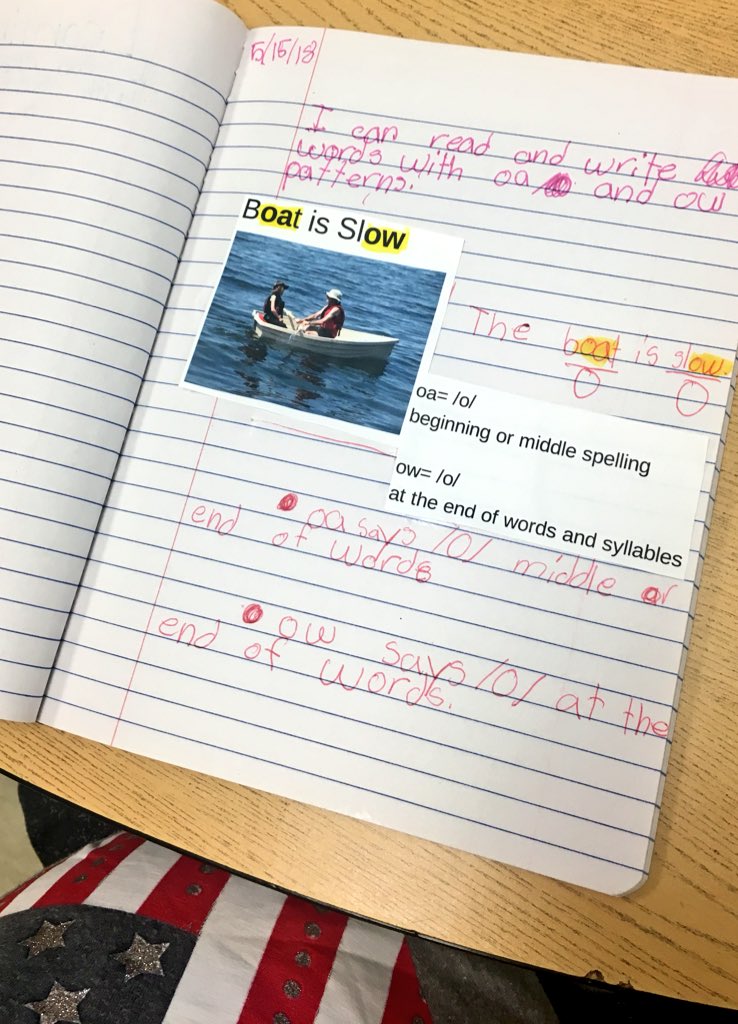 5/15/18
I can read and write
words with oa and ow
patterns.
Boat is Slow
The boat is slow.
O O
oa= /o/
beginning or middle spelling
ow= /o/
at the end of words and syllables
oa says /o/ middle or
end of words
ow says /o/ at the
end of words.